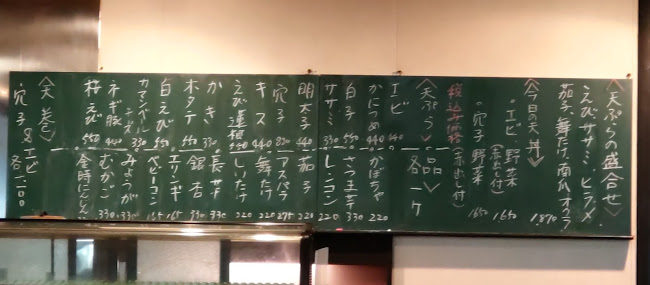 〈天ぷらの盛合せ〉
えび、ササミ、ヒラメ、
茄子、舞たけ、南瓜、オクラ
1,870
〈今日の天丼〉
・エビ、野菜
(赤出し付)
1650
・穴子、野菜
(赤出し付)
1650
税込み価格
〈天ぷら〉
各一品
一ケ
エビ 440
かにつめ 440
白子 550
ササミ
明太子
穴子
キス 440
えび蓮根
かき
ホタテ
白えび 550
カマンベールチーズ
ネギ豚 440
桜えび 550
かぼちゃ 220
さつま芋 330
レンコン 220
茄子 220
アスパラ 275
舞たけ 220
しいたけ 220
長芋
銀杏 330
エリンギ 165
ベビーコーン 165
みょうが 330
むかご 330
金時にんじん
〈天巻〉
穴子&エビ
各一一〇〇